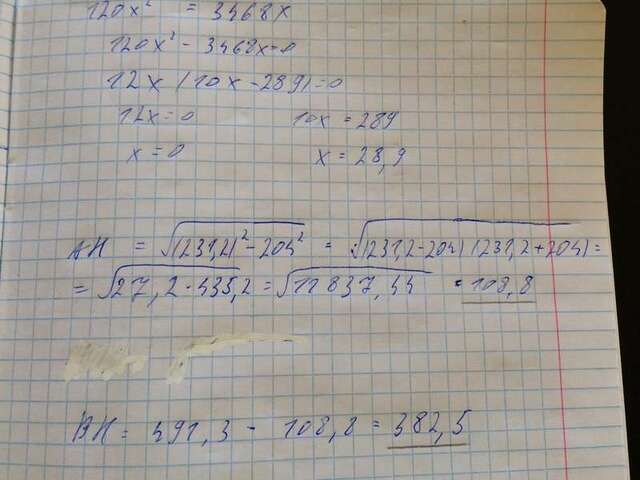 120x² = 3468x
120x² - 3468x=0
12x (10x - 289)=0
12x=0 10x = 289
x=0 x = 28,9
AH = √(231,2)² - 204² = √(231,2-204)(231,2+204) =
= √27,2·435,2 = √11837,44 = 108,8
BH = 491,3 - 108,8 = 382,5